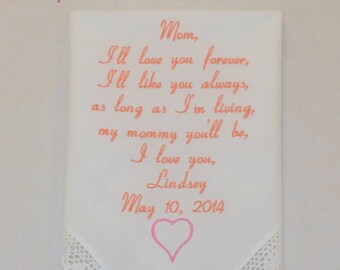 Mom,
I'll love you forever,
I'll like you always,
as long as I'm living,
my mommy you'll be,
I love you,
Lindsey
May 10, 2014